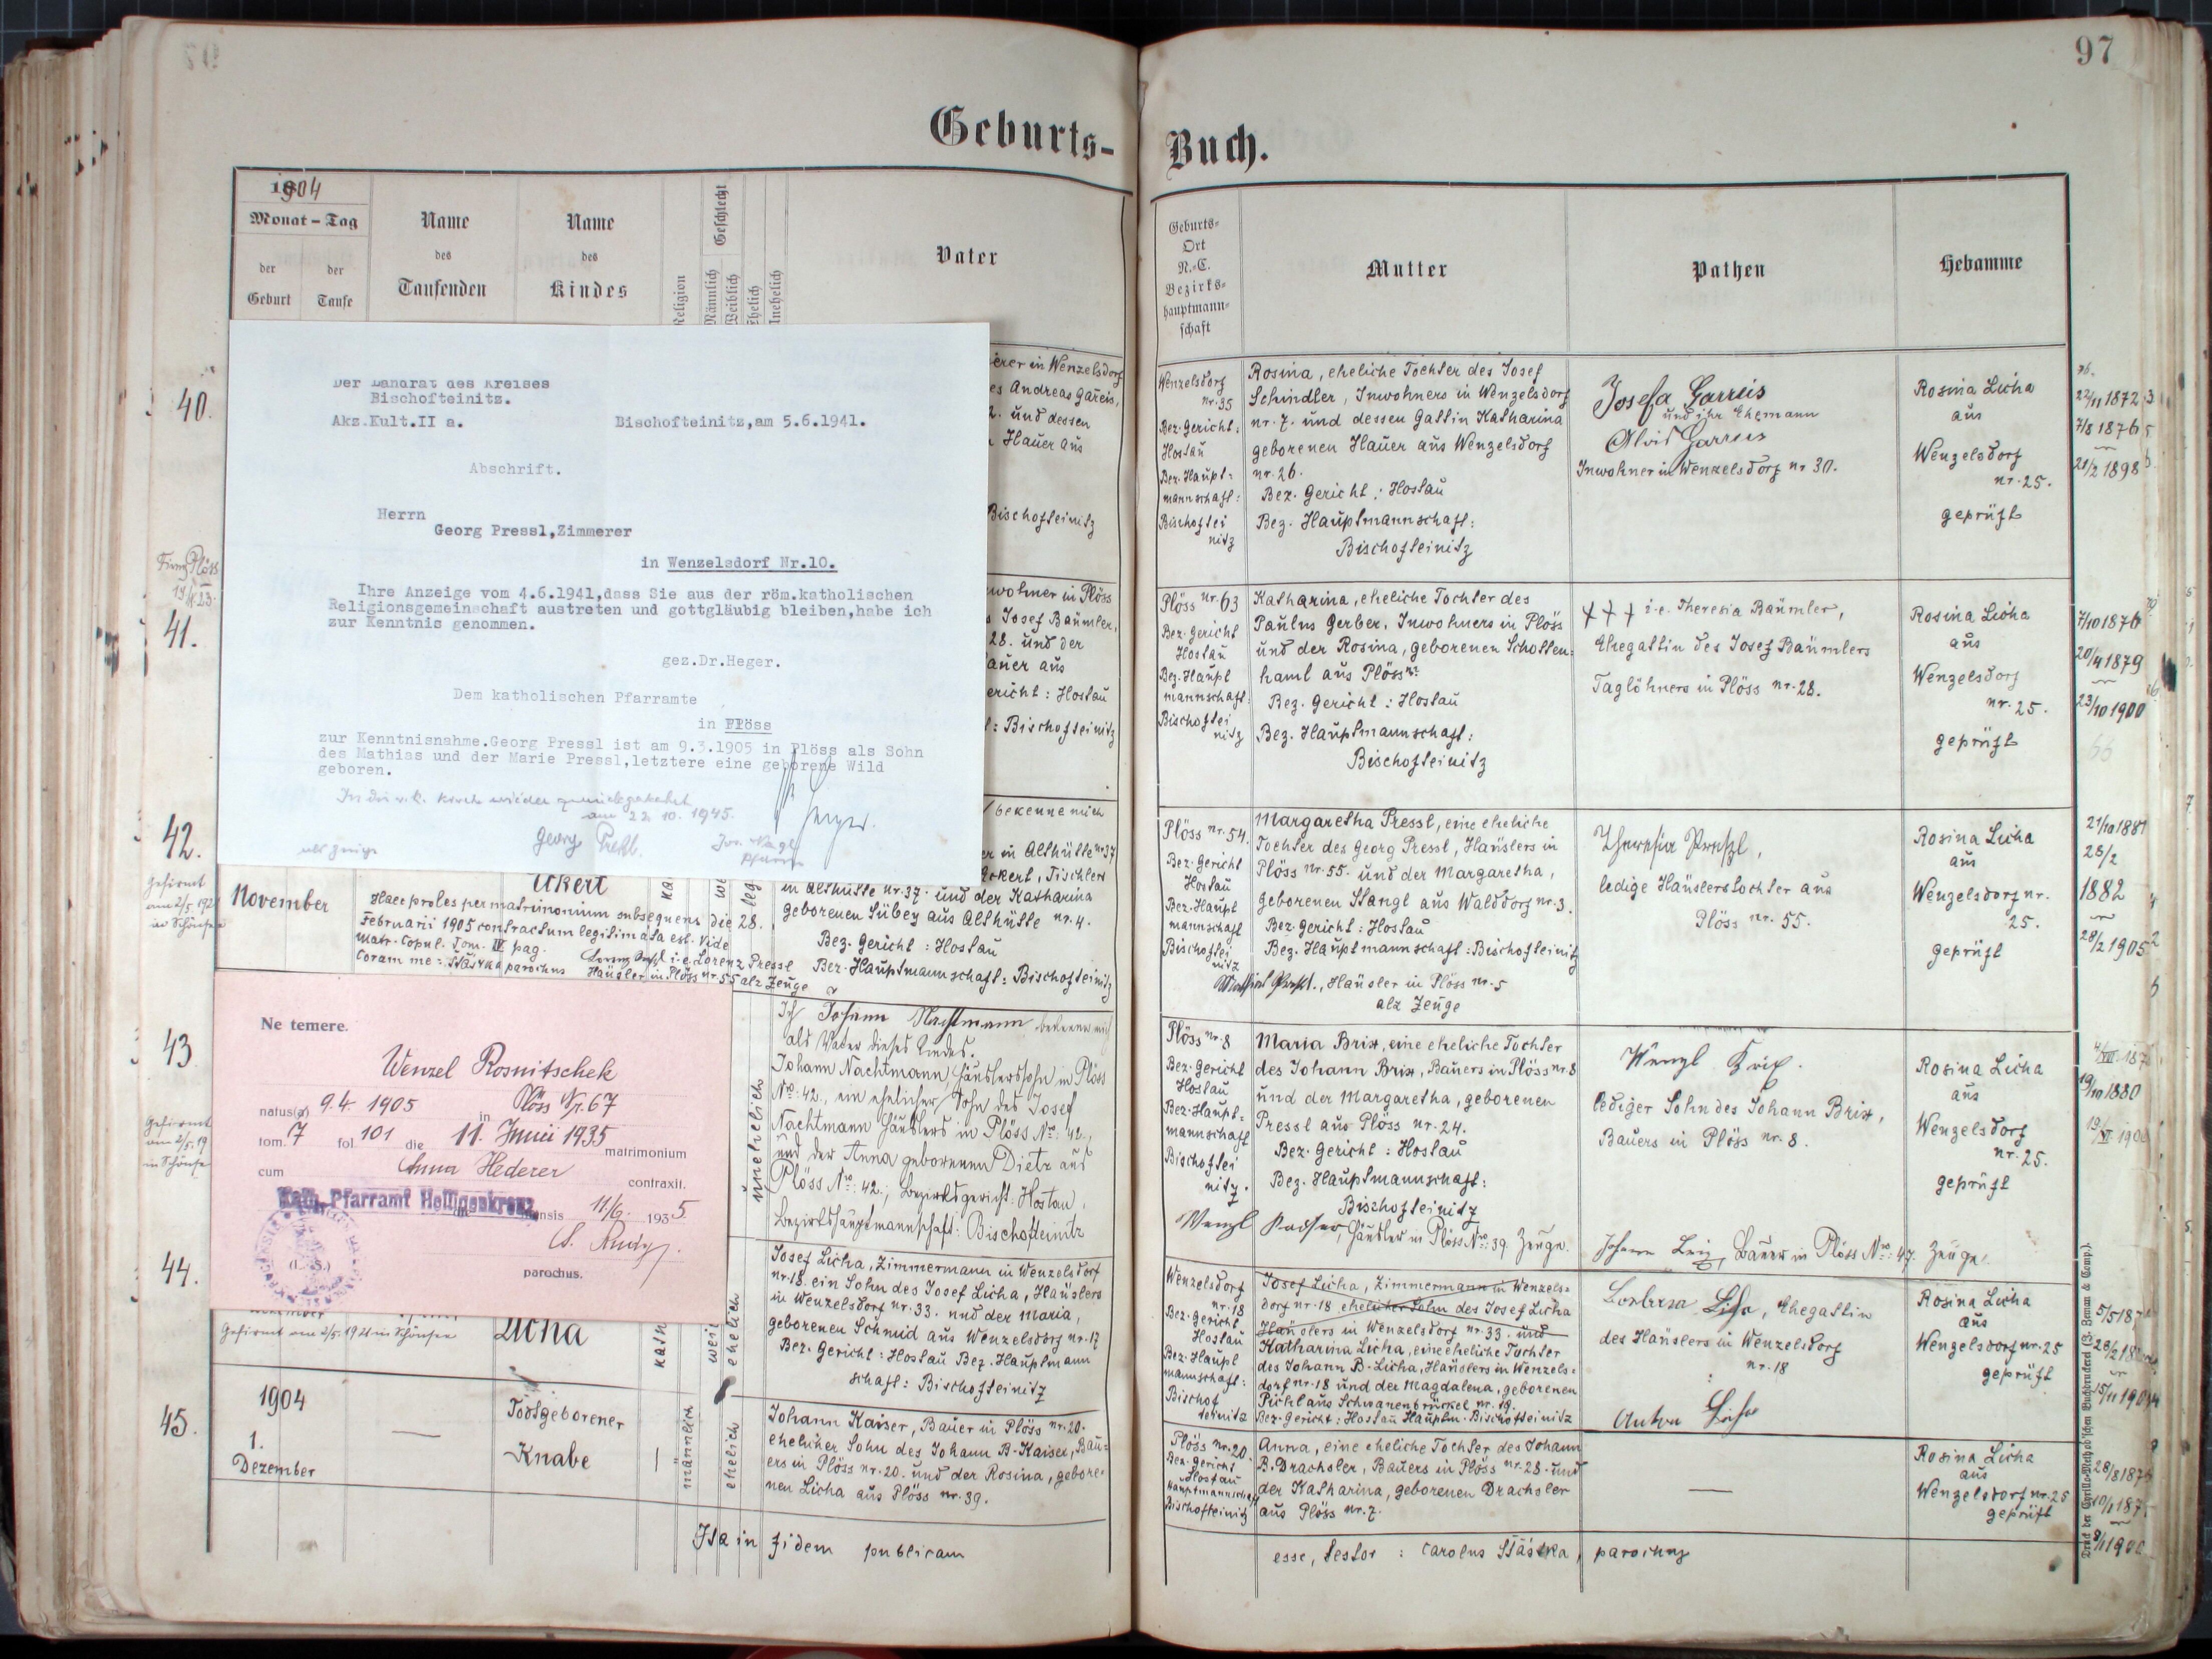 97
Geburts-
Buch.
1904
Monat – Tag
der
Geburt
der
Taufe
Name
des
Taufenden
Name
des
Kindes
Religion
Geschlecht
Männlich
Weiblich
Ehelich
Unehelich
Vater
Geburts-
Ort
N.-C.
Bezirks-
hauptmann-
schaft
Mutter
Pathen
Hebamme
Der Landrat des Kreises
Bischofteinitz.
Akz.Kult.II a.
Bischofteinitz,am 5.6.1941.
Abschrift.
Herrn
Georg Pressl,Zimmerer
in Wenzelsdorf Nr.10.
Ihre Anzeige vom 4.6.1941,dass Sie aus der röm.katholischen
Religionsgemeinschaft austreten und gottgläubig bleiben,habe ich
zur Kenntnis genommen.
gez.Dr.Heger.
Dem katholischen Pfarramte
in Plöss
zur Kenntnisnahme.Georg Pressl ist am 9.3.1905 in Plöss als Sohn
des Mathias und der Marie Pressl,letztere eine geborene Wild
geboren.
In die r. k. Kirche wieder zurückgekehrt
am 22. 10. 1945.
Georg Preßl.
als Zeuge
Pfarrer
40.
erer in Wenzelsdorf
es Andreas Gareis,
2. und dessen
Hauer aus
Bischofteinitz
Wenzelsdorf
nr. 35
Bez. Gericht:
Hostau
Bez. Haupt-
mannschaft:
Bischoftei
nitz
Rosina, eheliche Tochter des Josef
Schindler, Inwohners in Wenzelsdorf
nr. 7. und dessen Gattin Katharina
geborenen Hauer aus Wenzelsdorf
nr. 26.
Bez. Gericht: Hostau
Bez. Hauptmannschaft:
Bischofteinitz
Josefa Garreis
und ihr Ehemann
Alois Garreis
Inwohner in Wenzelsdorf nr 30.
Rosina Licha
aus
Wenzelsdorf
nr. 25.
geprüft
22/11 1872
7/8 1876
21/2 1898
Plöss
41.
nwohner in Plöss
s Josef Bäumler,
28. und der
auer aus
ericht: Hostau
: Bischofteinitz
Plöss nr. 63
Bez. Gericht
Hostau
Bez. Haupt
mannschaft:
Bischoftei
nitz
Katharina, eheliche Tochter des
Paulus Gerber, Inwohners in Plöss
und der Rosina, geborenen Schotten-
haml aus Plöss nr.
Bez. Gericht: Hostau
Bez. Hauptmannschaft:
Bischofteinitz
+++ i. e. Theresia Bäumler,
Ehegattin des Josef Bäumlers
Taglöhners in Plöss nr. 28.
Rosina Licha
aus
Wenzelsdorf
nr. 25.
geprüft
7/10 1876
20/4 1879
23/10 1900
66
42.
Gefirmt
am 2/5. 192
in Schönsee
November
Eckert
bekenne mich
er in Althütte nr 37
Eckert, Tischler
in Althütte nr. 37. und der Katharina
geborenen Lübey aus Althütte nr. 4.
Bez. Gericht: Hostau
Bez. Hauptmannschaft: Bischofteinitz
Haec proles per matrimonium subsequens die 28.
Februarii 1905 contractum legitimata est. Vide
Matr. Copul. Tom. IV pag.
Coram me: Šťástka parochus
i. e. Lorenz Pressl
Häusler in Plöss nr. 55 als Zeuge
Plöss nr. 54.
Bez. Gericht
Hostau
Bez. Haupt
mannschaft
Bischoftei
nitz
Margaretha Pressl, eine eheliche
Tochter des Georg Pressl, Häuslers in
Plöss nr. 55. und der Margaretha,
geborenen Stangl aus Walddorf nr. 3.
Bez. Gericht: Hostau
Bez. Hauptmannschaft: Bischofteinitz
Mathias Preßl., Häusler in Plöss nr. 5
als Zeuge
Theresia Preßl,
ledige Häuslerstochter aus
Plöss nr. 55.
Rosina Licha
aus
Wenzelsdorf nr.
25.
geprüft
21/10 1881
28/2
1882
28/2 1905
43
Gefirmt
am 2/5. 19
in Schönse
Ne temere.
Wenzel Rosnitschek
natus(a) 9.4. 1905 in Plöss Nr. 67
tom. 7 fol. 101 die 11. Junii 1935
matrimonium
cum Anna Hederer contraxit.
Kath. Pfarramt Heiligenkreuz
11/6. 1935.
(L. S.)
parochus.
unehelich
Ich Johann Nachtmann bekenne mich
als Vater dieses Kindes.
Johann Nachtmann, Häuslerssohn in Plöss
No: 42., ein ehelicher Sohn des Josef
Nachtmann Häuslers in Plöss No: 42.,
und der Anna geborenen Dietz aus
Plöss No: 42.; Bezirksgericht: Hostau,
Bezirkshauptmannschaft: Bischofteinitz
Plöss nr. 8
Bez. Gericht
Hostau
Bez. Haupt-
mannschaft
Bischoftei
nitz.
Maria Brix, eine eheliche Tochter
des Johann Brix, Bauers in Plöss nr. 8
und der Margaretha, geborenen
Pressl aus Plöss nr. 24.
Bez. Gericht: Hostau
Bez. Hauptmannschaft:
Bischofteinitz
Wenzl Kaiser, Häusler in Plöss No: 39. Zeuge.
Wenzl Brix.
lediger Sohn des Johann Brix,
Bauers in Plöss nr. 8.
Johann Brix, Bauer in Plöss No: 47. Zeuge.
Rosina Licha
aus
Wenzelsdorf
nr. 25.
geprüft
19/10 1880
44.
Gefirmt am 2/5. 1921 in Schönsee
Licha
kath
weib
ehelich
Josef Licha, Zimmermann in Wenzelsdorf
nr. 18. ein Sohn des Josef Licha, Häuslers
in Wenzelsdorf nr. 33. und der Maria,
geborenen Schmid aus Wenzelsdorf nr. 17
Bez. Gericht: Hostau Bez. Hauptmann
schaft: Bischofteinitz
Wenzelsdorf
nr. 18
Bez. Gericht
Hostau
Bez. Haupt
mannschaft:
Bischof
teinitz
Josef Licha, Zimmermann in Wenzels-
dorf nr. 18 ehelicher Sohn des Josef Licha
Häuslers in Wenzelsdorf nr. 33. und
Katharina Licha, eine eheliche Tochter
des Johann B. Licha, Häuslers in Wenzels-
dorf nr. 18 und der Magdalena, geborenen
Pichl aus Schwanenbrückel nr. 19.
Bez. Gericht: Hostau Hauptm. Bischofteinitz
Barbara Licha, Ehegattin
des Häuslers in Wenzelsdorf
nr. 18
Anton Licha
Rosina Licha
aus
Wenzelsdorf nr. 25
geprüft
15/11 1904
45.
1904
1.
Dezember
Todtgeborener
Knabe
männlich
ehelich
Johann Kaiser, Bauer in Plöss nr. 20.
ehelicher Sohn des Johann B. Kaiser, Bau-
ers in Plöss nr. 20. und der Rosina, gebore-
nen Licha aus Plöss nr. 39.
Plöss nr. 20.
Bez. Gericht
Hostau
Hauptmannschaft
Bischofteinitz
Anna, eine eheliche Tochter des Johann
B. Drachsler, Bauers in Plöss nr. 28. und
der Katharina, geborenen Drachsler
aus Plöss nr. 7.
Rosina Licha
aus
Wenzelsdorf nr. 25
geprüft
Ita in fidem publicam
esse, testor: Carolus Šťástka, parochus
Druck der Cyrillo-Method'schen Buchdruckerei (J. Zeman & Comp.).